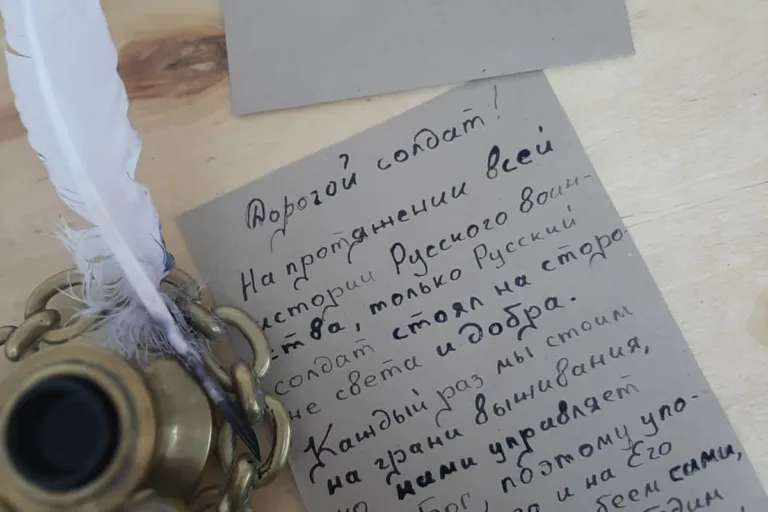 Дорогой солдат!
На протяжении всей
истории Русского воин-
ства, только Русский
солдат стоял на сторо-
не света и добра.
Каждый раз мы стоим
на грани выживания,
но нами управляет
Бог, поэтому упо-
и на Его
сами,